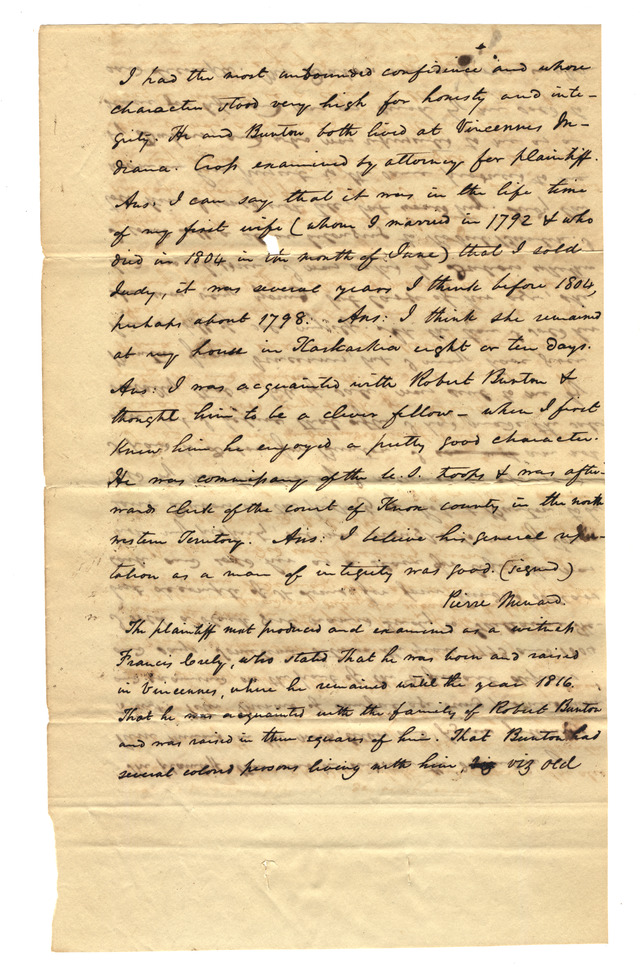 I had the most unbounded confidence and whose
character stood very high for honesty and inte-
grity. He and Buntin both lived at Vincennes In-
diana. Cross examined by attorney for plaintiff.
Ans: I can say that it was in the life time
of my first wife (whom I married in 1792 & who
died in 1804 in the month of June) that I sold
Judy, it was several years I think before 1804,
perhaps about 1798. Ans: I think she remained
at my house in Kaskaskia eight or ten days.
Ans: I was acquainted with Robert Buntin &
thought him to be a clever fellow – when I first
knew him he enjoyed a pretty good character.
He was commissary of the U.S. troops & was after-
wards clerk of the court of Knox county in the north
western Territory. Ans: I believe his general repu-
tation as a man of integrity was good. (signed)
Pierre Menard.
The plaintiff next produced and examined as a witness
Francis, who stated That he was born and raised
in Vincennes, where he remained until the year 1816.
That he was acquainted with the family of Robert Buntin
and was raised in three squares of him. That Buntin had
several colored persons living with him, viz old